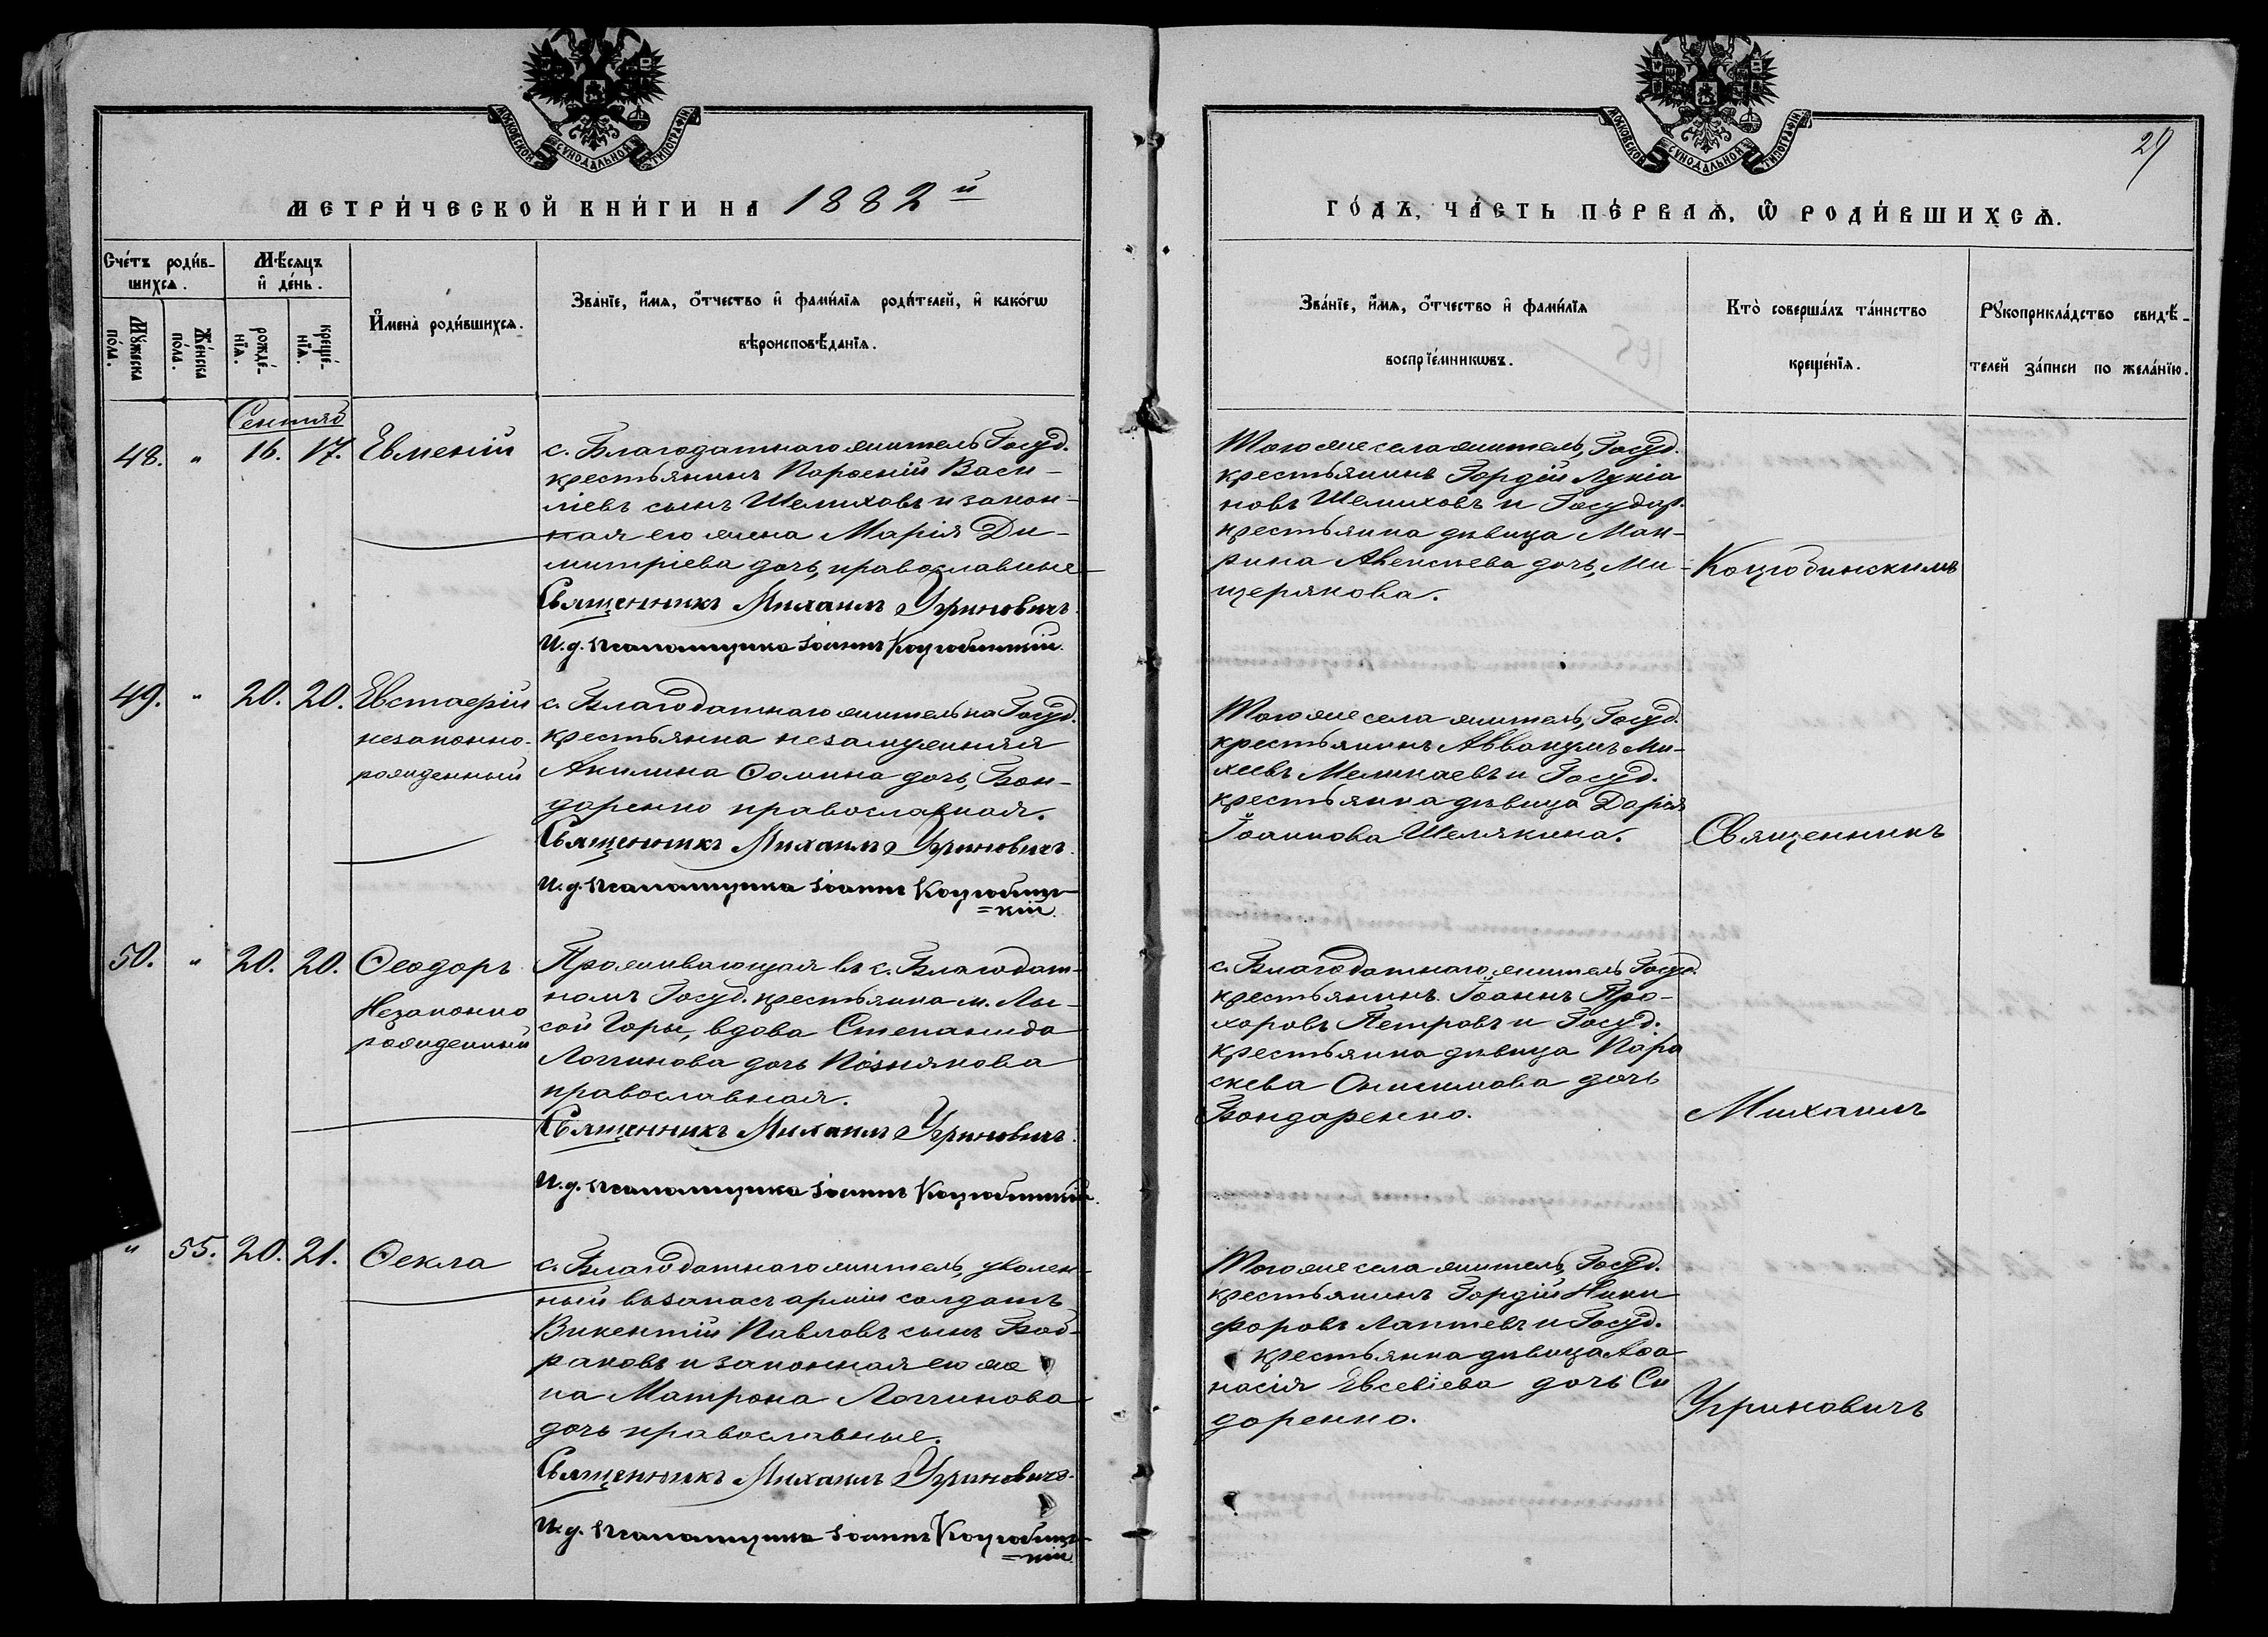 МОСКОВСКОЙ СѴНОДАЛЬНОЙ ТИПОГРАФІИ
МЕТРИ́ЧЕСКОЙ КНИ́ГИ НА 1882й
Сче́тъ роди́в-
шихсѧ.
Мѣ́сяцъ
и҆ де́нь.
Мꙋ́жеска
по́ла.
Же́нска
по́ла.
рожде́-
нїѧ.
креще́-
нїѧ.
И҆мена̀ роди́вшихсѧ.
Зва́нїе, и҆́мѧ, ѻ҆́тчество и҆ фами́лїѧ роди́телей, и҆ како́гѡ
вѣроисповѣ́данїѧ.
Сентяб
48. " 16. 17. Евменій
с. Благодатнаго житель Госуд.
крестьянинъ Парѳеній Васи-
ліевъ сынъ Шелиховъ и закон-
ная его жена Марія Ди-
митріева дочь, православные
Священникъ Михаилъ Угриновичъ.
И. д. псаломщика Іоаннъ Коцюбинскій.
49. " 20. 20. Евстаѳій
незаконно-
рожденный
с. Благодатнаго жителька Госуд.
крестьянка незамужняя
Акилина Ѳомина дочь, Бон-
даренко православная.
Священникъ Михаилъ Угриновичъ.
И. д. псаломщика Іоаннъ Коцюбинс-
=кій.
50. " 20. 20. Ѳеодоръ
Незаконно
рожденный
Проживающая въ с. Благодат-
номъ Госуд. крестьянка м. Лы-
сой Горы, вдова Степанида
Логгинова дочь Познякова
православная.
Священникъ Михаилъ Угриновичъ.
И. д. псаломщика Іоаннъ Коцюбинскій.
" 55. 20. 21. Ѳекла
с. Благодатнаго житель, уволен-
ный въ запасъ арміи солдатъ
Викентій Павловъ сынъ Боб-
раковъ и законная его же
на Матрона Логгинова
дочь православные.
Священникъ Михаилъ Угриновичъ.
И. д. псаломщика Іоаннъ Коцюбинс-
=кій.
МОСКОВСКОЙ СѴНОДАЛЬНОЙ ТИПОГРАФІИ
29
ГО́ДЪ, ЧА́СТЬ ПЕ́РВАѦ, Ѡ҆ РОДИ́ВШИХСѦ.
Зва́нїе, и҆́мѧ, ѻ҆́тчество и҆ фами́лїѧ
воспрїе́мникѡвъ.
Кто̀ соверша́лъ та́инство
креще́нїѧ.
Рꙋкоприкла́дство свидѣ́-
телей за́писи по жела́нїю.
Того же села житель, Госуд.
крестьянинъ Гордій Лукіа
новъ Шелиховъ и Государ.
крестьянка дѣвица Мак-
рина Авксиева дочь, Ми-
щерякова.
Коцюбинскимъ
Того же села житель, Госуд.
крестьянинъ Аввакумъ Ми-
хеевъ Мелкаевъ и Госуд.
крестьянка дѣвица Дарія
Іоаннова Шемякина.
Священникъ
с. Благодатнаго житель Госуд.
крестьянинъ Іоаннъ Про-
хоровъ Петровъ и Госуд.
крестьянка дѣвица Пара
скева Онисимова дочь
Бондаренко.
Михаилъ
Того же села житель, Госуд.
крестьянинъ Гордій Ники
форовъ Лаптевъ и Госуд.
крестьянка дѣвица Аѳа
насія Евсевіева дочь Си
доренко.
Угриновичъ